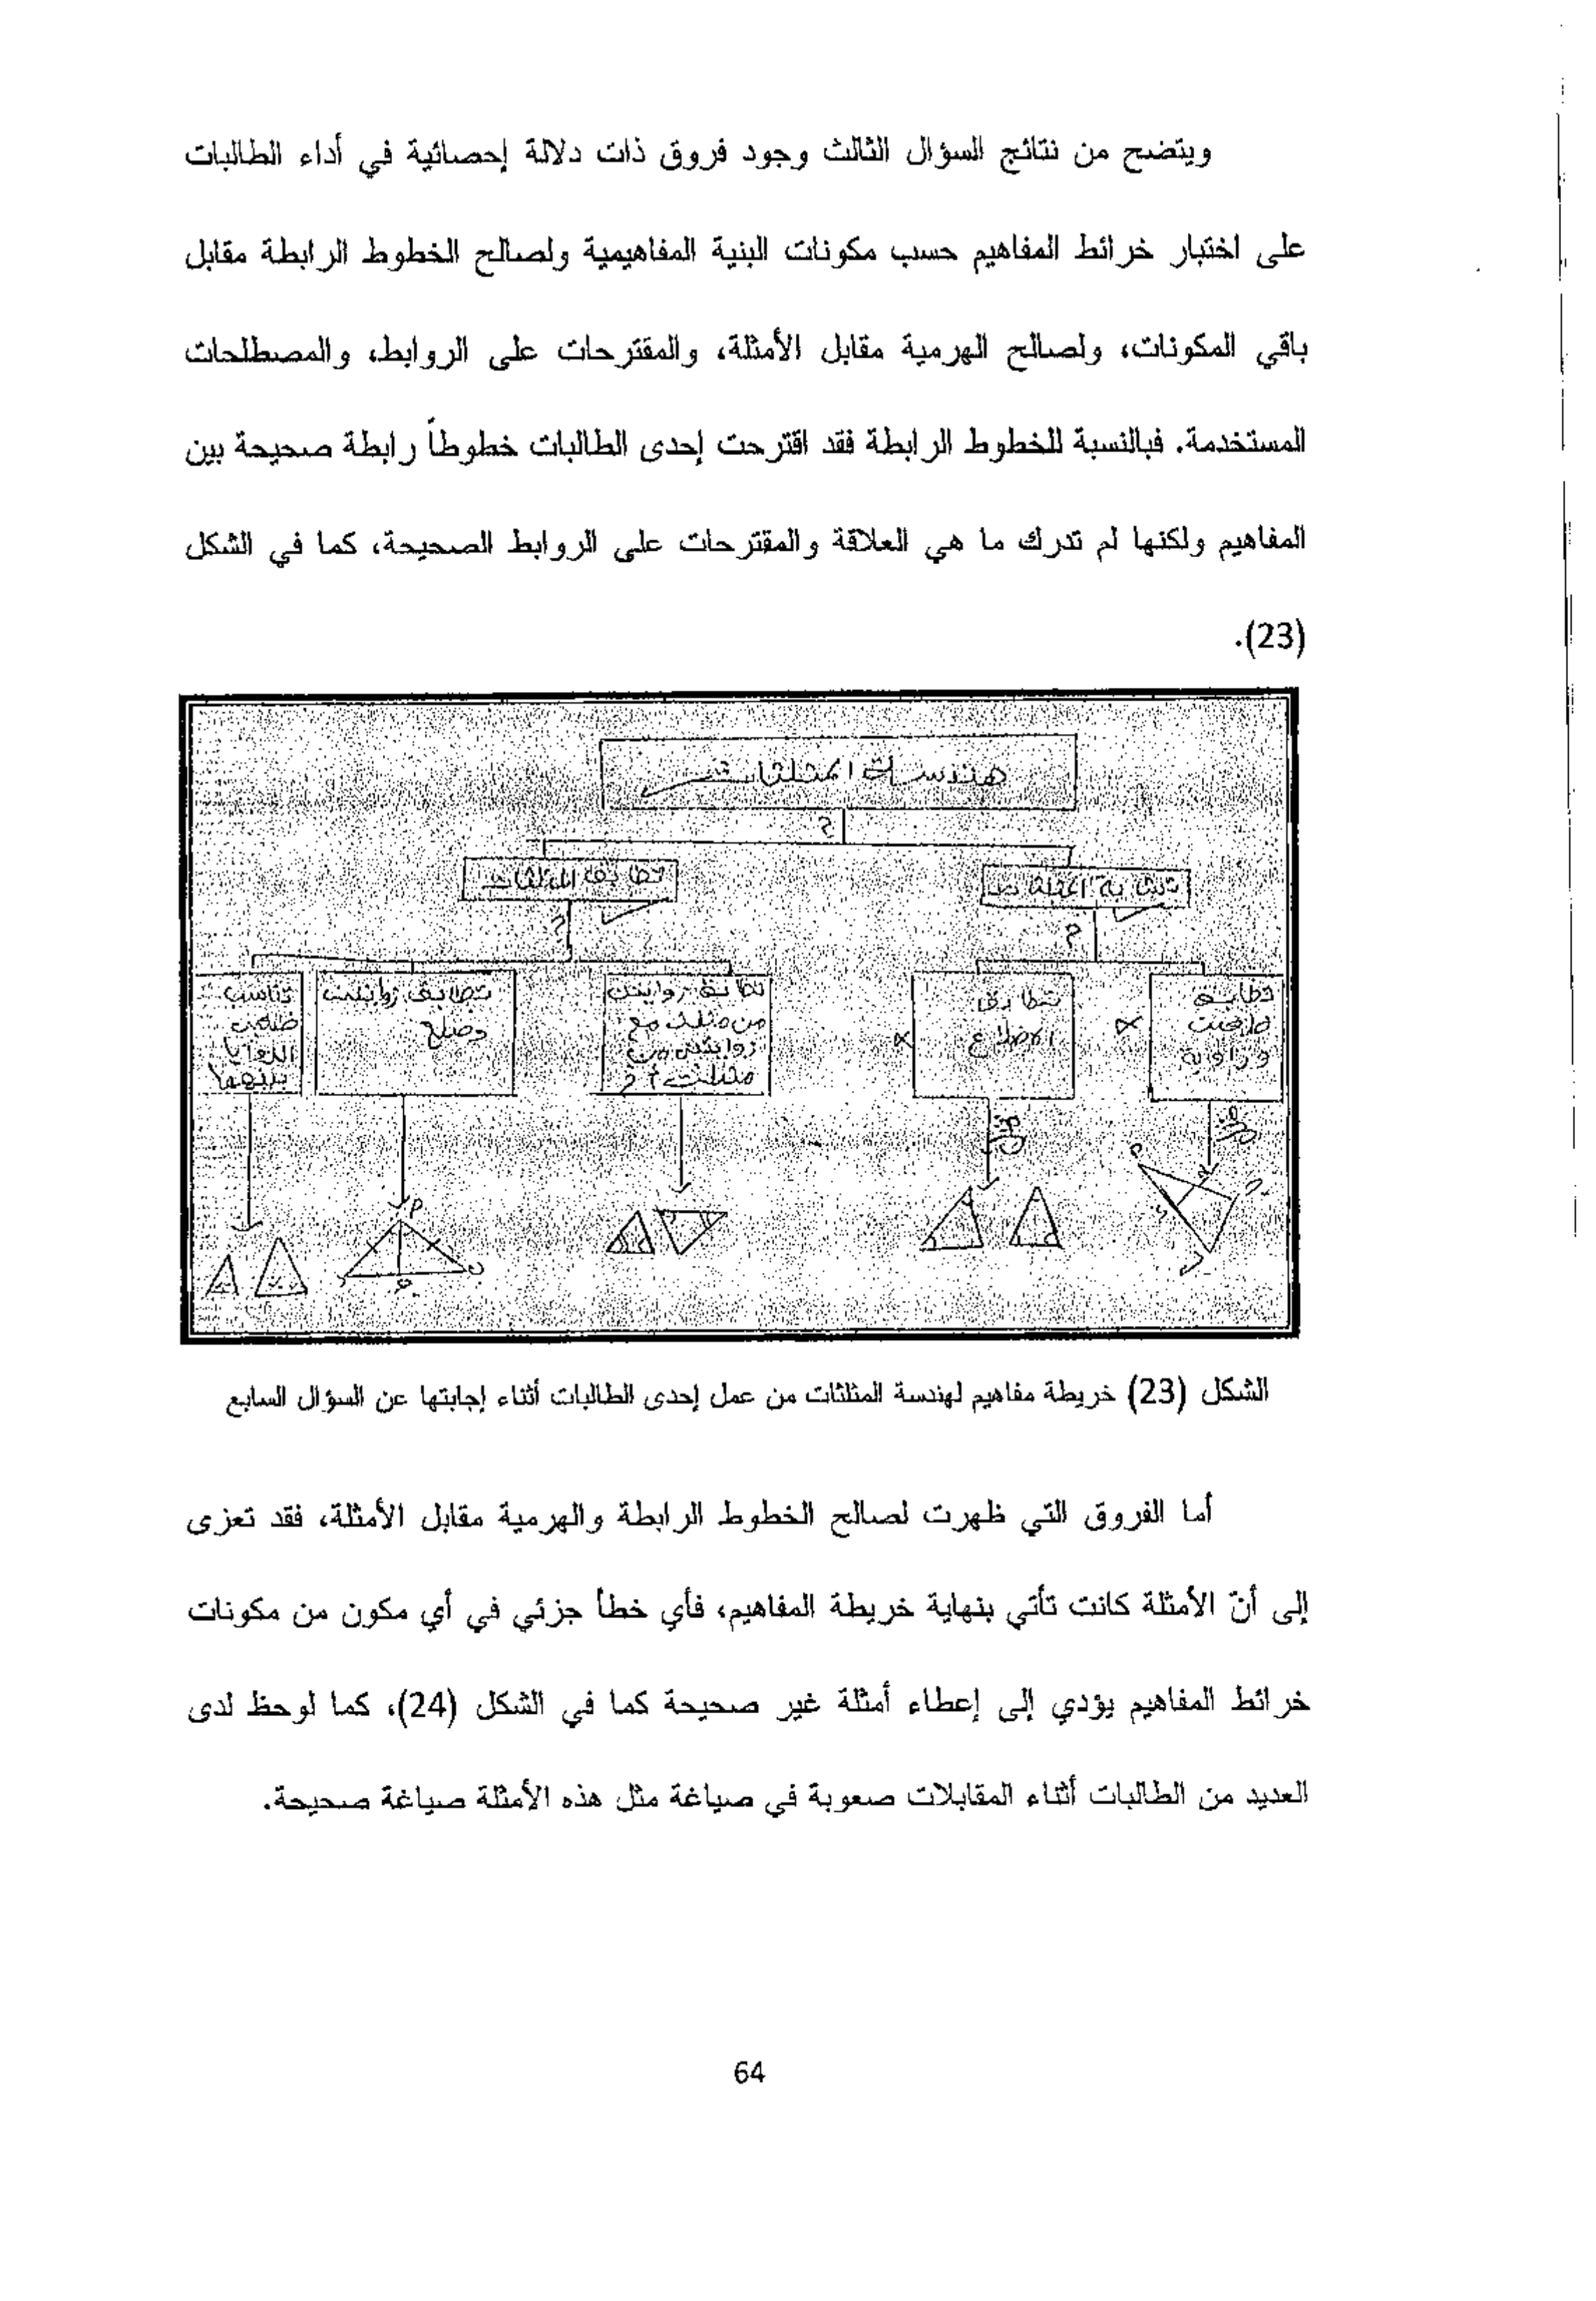 ويتضح من نتائج السؤال الثالث وجود فروق ذات دلالة إحصائية في أداء الطالبات
على اختبار خرائط المفاهيم حسب مكونات البنية المفاهيمية ولصالح الخطوط الرابطة مقابل
باقي المكونات، ولصالح الهرمية مقابل الأمثلة، والمقترحات على الروابط، والمصطلحات
المستخدمة. فبالنسبة للخطوط الرابطة فقد اقترحت إحدى الطالبات خطوطاً رابطة صحيحة بين
المفاهيم ولكنها لم تدرك ما هي العلاقة والمقترحات على الروابط الصحيحة، كما في الشكل
(23).
المثلثات
؟
تشابه المثلثات
تطابق المثلثات
؟
؟
تطابق
ضلعين
وزاوية
تطابق
الاضلاع
تطابق زوايتين
من مثلث مع
زوايتين من
مثلث آخر
تطابق زوايتين
وضلع
تناسب
ضلعين
الزوايا
بينهما
الشكل (23) خريطة مفاهيم لهندسة المثلثات من عمل إحدى الطالبات أثناء إجابتها عن السؤال السابع
أما الفروق التي ظهرت لصالح الخطوط الرابطة والهرمية مقابل الأمثلة، فقد تعزى
إلى أنّ الأمثلة كانت تأتي بنهاية خريطة المفاهيم، فأي خطأ جزئي في أي مكون من مكونات
خرائط المفاهيم يؤدي إلى إعطاء أمثلة غير صحيحة كما في الشكل (24)، كما لوحظ لدى
العديد من الطالبات أثناء المقابلات صعوبة في صياغة مثل هذه الأمثلة صياغة صحيحة.
64